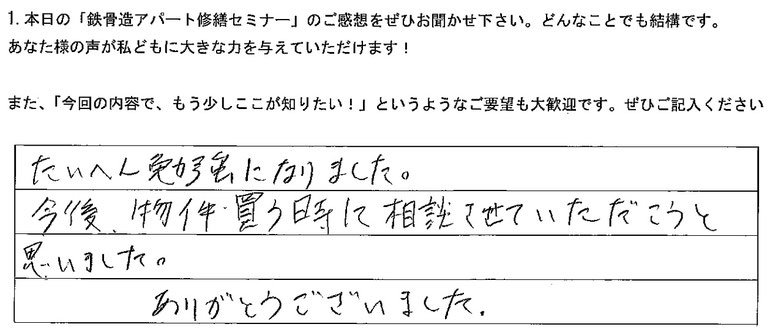 1.本日の「鉄骨造アパート修繕セミナー」のご感想をぜひお聞かせ下さい。どんなことでも結構です。
あなた様の声が私どもに大きな力を与えていただけます!
また、「今回の内容で、もう少しここが知りたい!」というようなご要望も大歓迎です。ぜひご記入ください
たいへん勉強になりました。
今後、物件買う時に相談させていただこうと
思いました。
ありがとうございました。